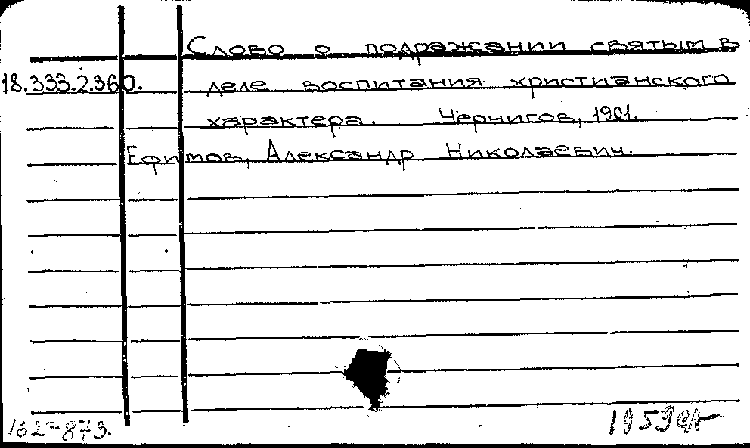 Слово о подражании святым в
18.333.2.360. деле воспитания христианского
характера. Чернигов, 1901.
Ефимов, Александр Николаевич.
162-873.